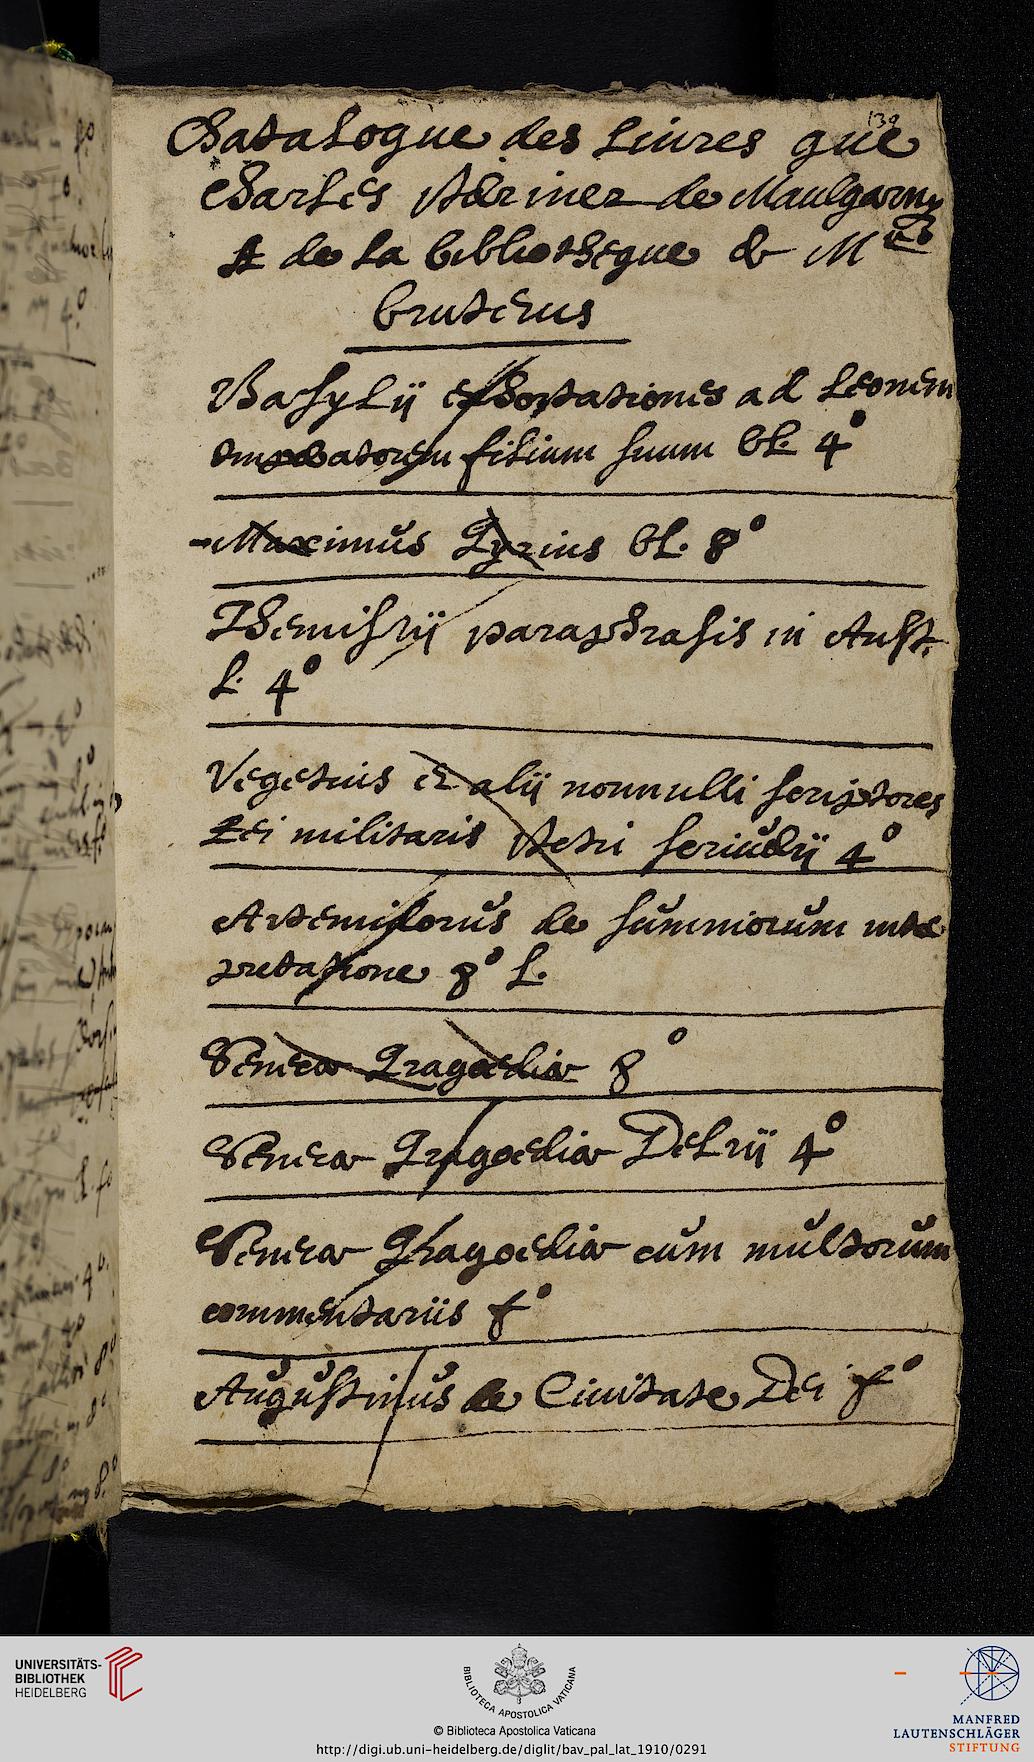 139
Catalogue des liures que
Charles de Maulgarny
de la bibliotheque & M
bruterus
Basylij exhortationes ad Leonem
Imperatorem filium suum bL. 4°
Maximus Tyrius bL. 8°
Themistij paraphrasis in Arist.
L. 4°
Vegetius et alij nonnulli scriptores
Rei militaris Petri scriuerij 4°
Artemidorus de sumniorum inter
pretatione 8° L.
Seneca Tragoedia 8°
Seneca Tragoedia Delrij 4°
Seneca Tragoedia cum multorum
commentariis f°
Augustinus de Ciuitate Dei f°
UNIVERSITÄTS-
BIBLIOTHEK
HEIDELBERG
BIBLIOTECA APOSTOLICA VATICANA
© Biblioteca Apostolica Vaticana
http://digi.ub.uni-heidelberg.de/diglit/bav_pal_lat_1910/0291
MANFRED
LAUTENSCHLÄGER
STIFTUNG